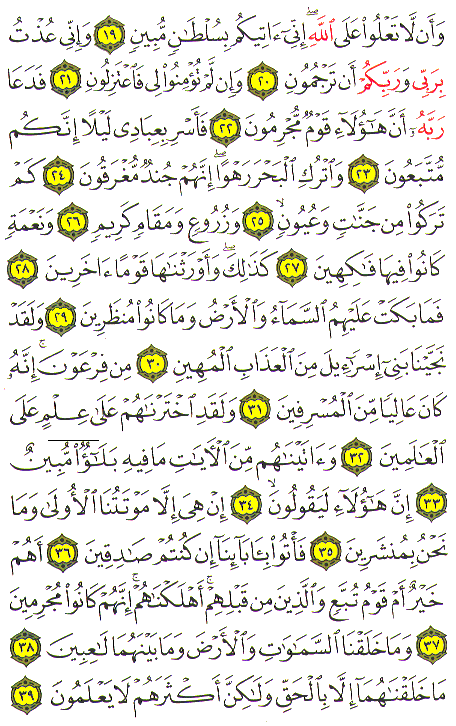 وَأَن لَّا تَعْلُوا۟ عَلَى ٱللَّهِ ۖ إِنِّىٓ ءَاتِيكُم بِسُلْطَٰنٍ مُّبِينٍ ١٩ وَإِنِّى عُذْتُ
بِرَبِّى وَرَبِّكُمْ أَن تَرْجُمُونِ ٢٠ وَإِن لَّمْ تُؤْمِنُوا۟ لِى فَٱعْتَزِلُونِ ٢١ فَدَعَا
رَبَّهُۥٓ أَنَّ هَٰٓؤُلَآءِ قَوْمٌ مُّجْرِمُونَ ٢٢ فَأَسْرِ بِعِبَادِى لَيْلًا إِنَّكُم
مُّتَّبَعُونَ ٢٣ وَٱتْرُكِ ٱلْبَحْرَ رَهْوًا ۖ إِنَّهُمْ جُندٌ مُّغْرَقُونَ ٢٤ كَمْ
تَرَكُوا۟ مِن جَنَّٰتٍ وَعُيُونٍ ٢٥ وَزُرُوعٍ وَمَقَامٍ كَرِيمٍ ٢٦ وَنَعْمَةٍ
كَانُوا۟ فِيهَا فَٰكِهِينَ ٢٧ كَذَٰلِكَ ۖ وَأَوْرَثْنَٰهَا قَوْمًا ءَاخَرِينَ ٢٨
فَمَا بَكَتْ عَلَيْهِمُ ٱلسَّمَآءُ وَٱلْأَرْضُ وَمَا كَانُوا۟ مُنظَرِينَ ٢٩ وَلَقَدْ
نَجَّيْنَا بَنِىٓ إِسْرَٰٓءِيلَ مِنَ ٱلْعَذَابِ ٱلْمُهِينِ ٣٠ مِن فِرْعَوْنَ ۚ إِنَّهُۥ
كَانَ عَالِيًا مِّنَ ٱلْمُسْرِفِينَ ٣١ وَلَقَدِ ٱخْتَرْنَٰهُمْ عَلَىٰ عِلْمٍ عَلَى
ٱلْعَٰلَمِينَ ٣٢ وَءَاتَيْنَٰهُم مِّنَ ٱلْءَايَٰتِ مَا فِيهِ بَلَٰٓؤٌا۟ مُّبِينٌ
٣٣ إِنَّ هَٰٓؤُلَآءِ لَيَقُولُونَ ٣٤ إِنْ هِىَ إِلَّا مَوْتَتُنَا ٱلْأُولَىٰ وَمَا
نَحْنُ بِمُنشَرِينَ ٣٥ فَأْتُوا۟ بِـَٔابَآئِنَآ إِن كُنتُمْ صَٰدِقِينَ ٣٦ أَهُمْ
خَيْرٌ أَمْ قَوْمُ تُبَّعٍ وَٱلَّذِينَ مِن قَبْلِهِمْ ۚ أَهْلَكْنَٰهُمْ ۖ إِنَّهُمْ كَانُوا۟ مُجْرِمِينَ
٣٧ وَمَا خَلَقْنَا ٱلسَّمَٰوَٰتِ وَٱلْأَرْضَ وَمَا بَيْنَهُمَا لَٰعِبِينَ ٣٨
مَا خَلَقْنَٰهُمَآ إِلَّا بِٱلْحَقِّ وَلَٰكِنَّ أَكْثَرَهُمْ لَا يَعْلَمُونَ ٣٩